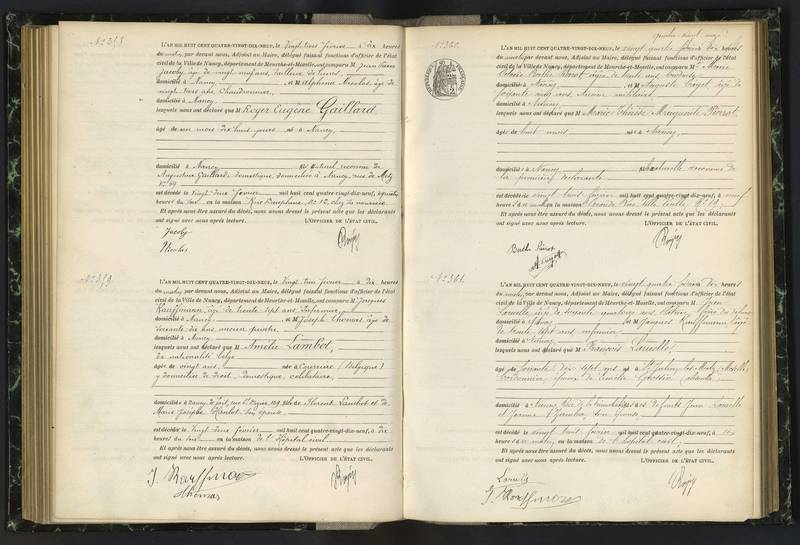 N° 358
L'AN MIL HUIT CENT QUATRE-VINGT-DIX-NEUF, le vingt trois février à dix heures
du matin, par devant nous, Adjoint au Maire, délégué faisant fonctions d'officier de l'état
civil de la Ville de Nancy, département de Meurthe-et-Moselle, ont comparu M
Jacoby, âgé de vingt
domicilié à Nancy et M Alphonse Nicolas âgé de
vingt trois ans,
domicilié à Nancy
lesquels nous ont déclaré que M Roger Eugène Gaillard
âgé de un mois dix huit jours né à Nancy
domicilié à Nancy reconnu de
Augustine Gaillard, domestique, domiciliée à Nancy, rue de Metz
N° 69
est décédé le vingt deux février mil huit cent quatre-vingt-dix-neuf, à quatre
heures du soir en la maison Rue Dauphine, N° 12, chez la nourrice
Et après nous être assuré du décès, nous avons dressé le présent acte que les déclarants
ont signé avec nous après lecture. L'OFFICIER DE L'ÉTAT CIVIL,
Jacoby
Nicolas
N° 359
L'AN MIL HUIT CENT QUATRE-VINGT-DIX-NEUF, le vingt trois février à dix heures
du matin, par devant nous, Adjoint au Maire, délégué faisant fonctions d'officier de l'état
civil de la Ville de Nancy, département de Meurthe-et-Moselle, ont comparu M Jacques
Kauffmann, âgé de trente sept ans, infirmier
domicilié à Nancy et M Joseph Thomas âgé de
soixante dix ans ancien
domicilié à Nancy
lesquels nous ont déclaré que M Amélie Lambot,
de nationalité belge
âgée de vingt ans née à Courrière (Belgique)
y domiciliée de droit, domestique, célibataire,
domiciliée à Nancy de fait, fille de Florent Lambot et de
Marie Josèphe son épouse
est décédée le vingt deux février mil huit cent quatre-vingt-dix-neuf, à dix
heures du soir en la maison de l'Hôpital civil
Et après nous être assuré du décès, nous avons dressé le présent acte que les déclarants
ont signé avec nous après lecture. L'OFFICIER DE L'ÉTAT CIVIL,
J. Kauffmann
Thomas
N° 360
L'AN MIL HUIT CENT QUATRE-VINGT-DIX-NEUF, le vingt quatre février dix heures
du matin par devant nous, Adjoint au Maire, délégué faisant fonctions d'officier de l'état
civil de la Ville de Nancy, département de Meurthe-et-Moselle, ont comparu M Marie
âgée de trente ans
domicilié à Nancy et M Auguste âgé de
soixante cinq ans, ancien militaire
domicilié à Nancy
lesquels nous ont déclaré que M Marie Thérèse Marguerite Pierrot
âgée de huit mois née à Nancy
domiciliée à Nancy naturelle reconnue de
la première déclarante
est décédée le vingt trois février mil huit cent quatre-vingt-dix-neuf, à neuf
heures du matin en la maison Grande Rue ville vieille, N° 19
Et après nous être assuré du décès, nous avons dressé le présent acte que les déclarants
ont signé avec nous après lecture. L'OFFICIER DE L'ÉTAT CIVIL,
N° 361
L'AN MIL HUIT CENT QUATRE-VINGT-DIX-NEUF, le vingt quatre février dix heures
du matin, par devant nous, Adjoint au Maire, délégué faisant fonctions d'officier de l'état
civil de la Ville de Nancy, département de Meurthe-et-Moselle, ont comparu M Jean
âgé de soixante quatorze ans
domicilié à Nancy et M Jacques Kauffmann âgé
de trente sept ans infirmier
domicilié à Nancy
lesquels nous ont déclaré que M François
âgé de soixante dix sept ans né à St Julien les Metz (Moselle)
cordonnier, époux de
domicilié à Nancy, fils de défunts Jean
et Jeanne son épouse
est décédé le vingt trois février mil huit cent quatre-vingt-dix-neuf, à
heures du matin, en la maison de l'hôpital civil
Et après nous être assuré du décès, nous avons dressé le présent acte que les déclarants
ont signé avec nous après lecture. L'OFFICIER DE L'ÉTAT CIVIL,
J. Kauffmann